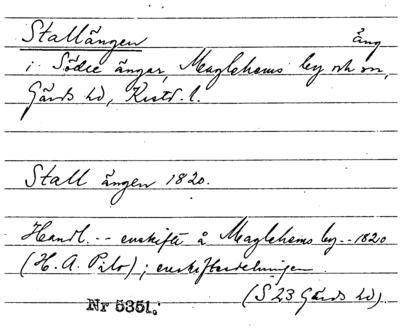 Stallängen Äng
i Södre ängar, Maglehems by och sn,
Gärds hd, Krist. l.
Stall ängen 1820.
Handl. -- enskifte å Maglehems by -- 1820
(H. A. Pilo); enskiftesdelningen.
(S 23 Gärds hd).
Nr 5351.